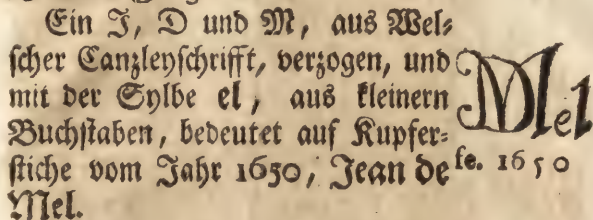 Ein J, D und M, aus Wel-
scher Canzleyschrifft, verzogen, und
mit der Sylbe el, aus kleinern
Buchstaben, bedeutet auf Kupfer-
stiche vom Jahr 1650, Jean de
Mel.
Mel
fe. 1650